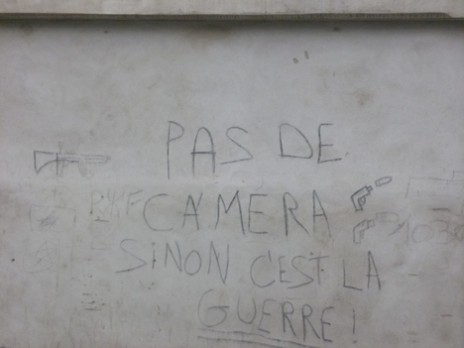 PAS DE
CAMERA
SINON C'EST LA
GUERRE!